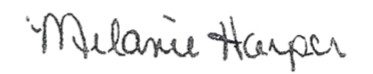 Melanie Harper